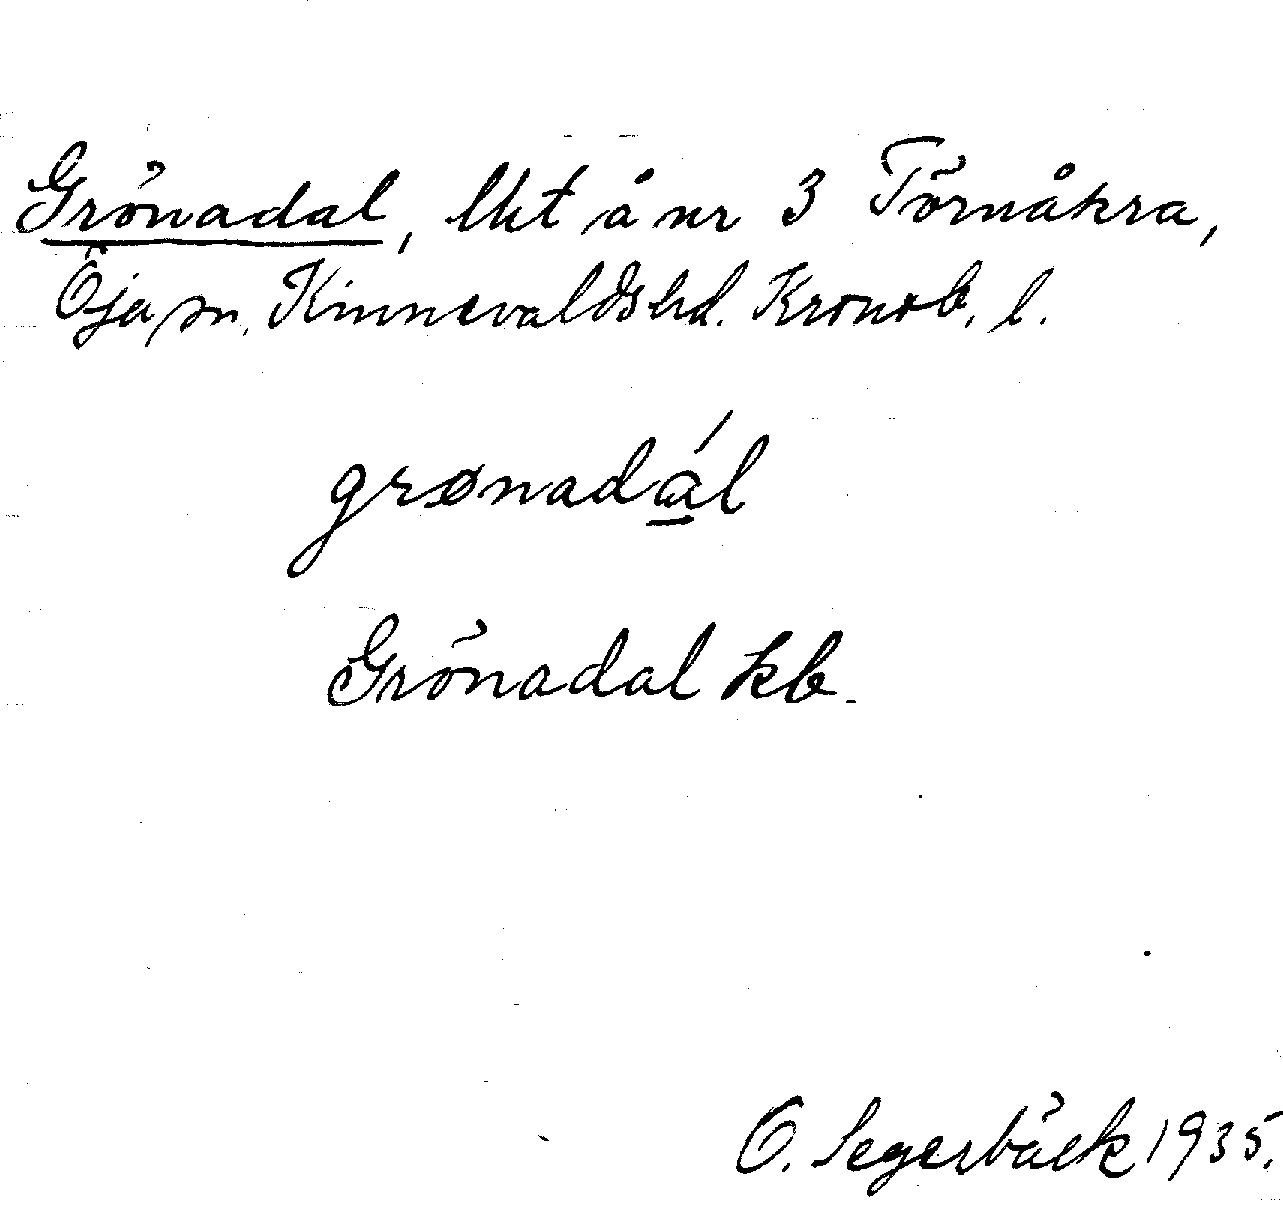 Grönadal, lht å nr 3 Törnåkra,
Öja sn, Kinnevalds hd. Kronob. l.
grønadál
Grönadal kb.
O. Segerbäck 1935.